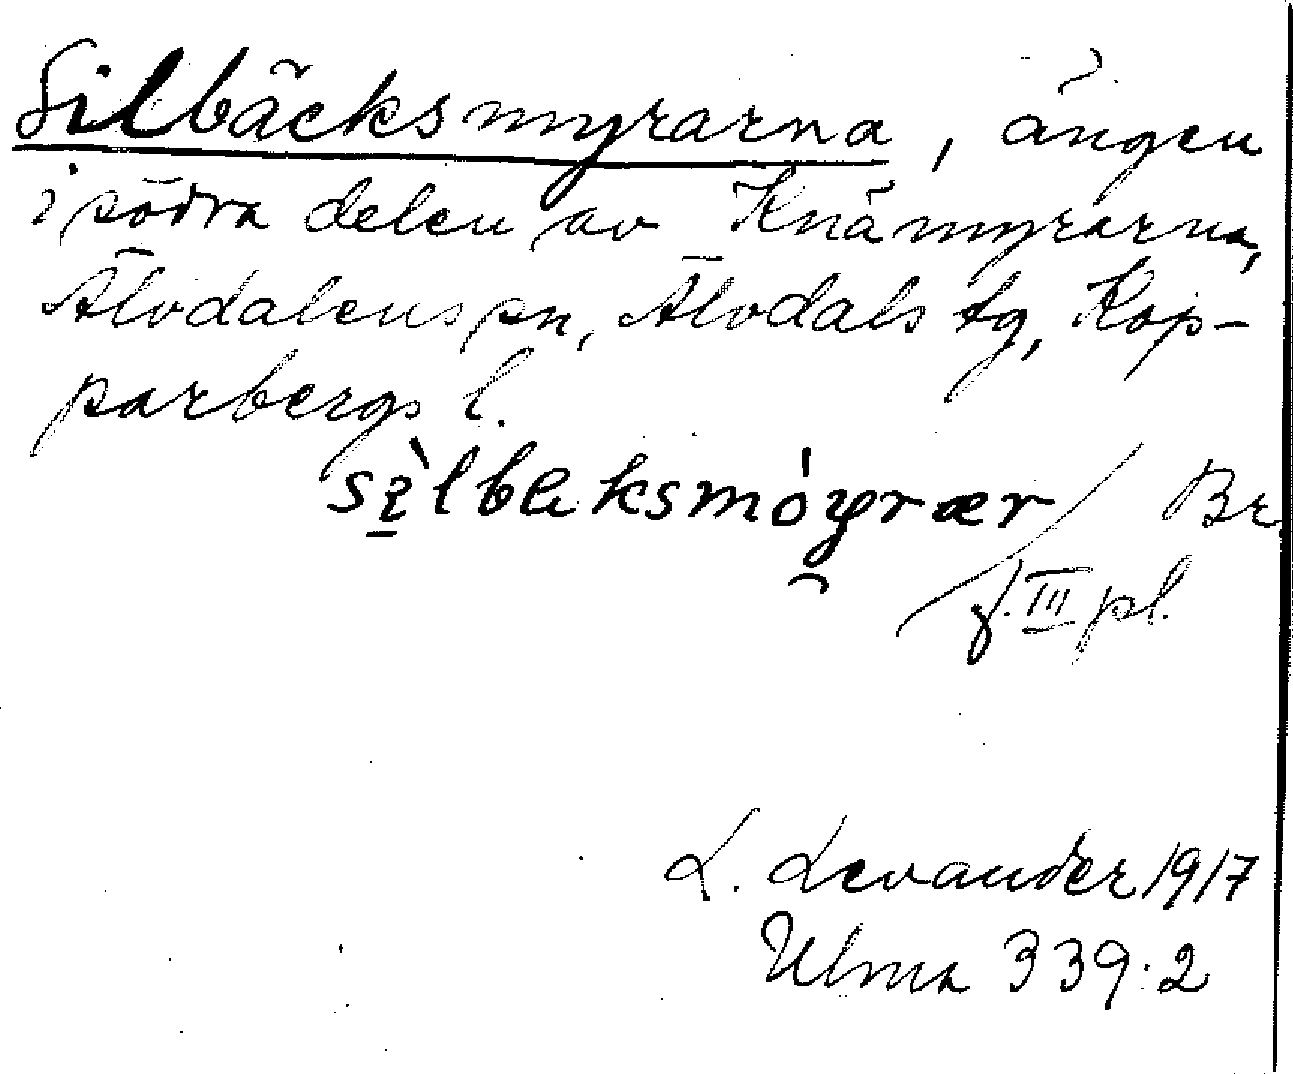 Silbäcksmyrarna, ängen
i södra delen av Knämyrarna,
Älvdalens sn, Älvdals tg, Kop-
parbergs l.
sìlbæksmóyrær Br
f. III pl.
L. Levander 1917
Ulma 339:2